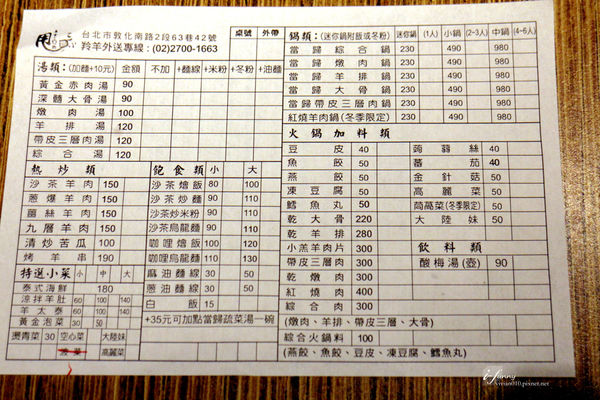 台北市敦化南路2段63巷42號
羚羊外送專線：(02)2700-1663
桌號 外帶
湯類：(加麵+10元) 金額 不加 +麵線 +米粉 +冬粉 +油麵
黃金赤肉湯 90
深髓大骨湯 90
燉肉湯 100
羊排湯 120
帶皮三層肉湯 120
綜合湯 120
熱炒類
沙茶羊肉 150
蔥爆羊肉 150
薑絲羊肉 150
九層羊肉 150
清炒苦瓜 100
烤羊串 190
特選小菜 小 中 大
泰式海鮮 180
涼拌羊肚 60 100 140
羊太泰 60 100 140
黃金泡菜 30 50
燙青菜 30 空心菜 大陸妹
菠菜 高麗菜
飽食類 小 大
沙茶燴飯 80 100
沙茶炒麵 90 110
沙茶炒米粉 90 110
沙茶烏龍麵 90 110
咖哩燴飯 100 120
咖哩烏龍麵 110 130
麻油麵線 30 50
蔥油麵線 30 50
白飯 15
+35元可加點當歸蔬菜湯一碗
鍋類：(迷你鍋附飯或冬粉) 迷你鍋 (1人) 小鍋 (2-3人) 中鍋 (4-6人)
當歸綜合鍋 230 490 980
當歸燉肉鍋 230 490 980
當歸羊排鍋 230 490 980
當歸大骨鍋 230 490 980
當歸帶皮三層肉鍋 230 490 980
紅燒羊肉鍋(冬季限定) 230 490 980
火鍋加料類
豆皮 40 蒟蒻絲 40
魚餃 50 番茄 40
燕餃 50 金針菇 50
凍豆腐 50 高麗菜 50
鱈魚丸 50 茼萵菜(冬季限定) 50
乾大骨 220 大陸妹 50
乾羊排 280
小羔羊肉片 300 飲料類
帶皮三層肉 300 酸梅湯(壺) 90
乾燉肉 400
紅燒肉 400
綜合肉 300
(燉肉、羊排、帶皮三層、大骨)
綜合火鍋料 100
(燕餃、魚餃、豆皮、凍豆腐、鱈魚丸)